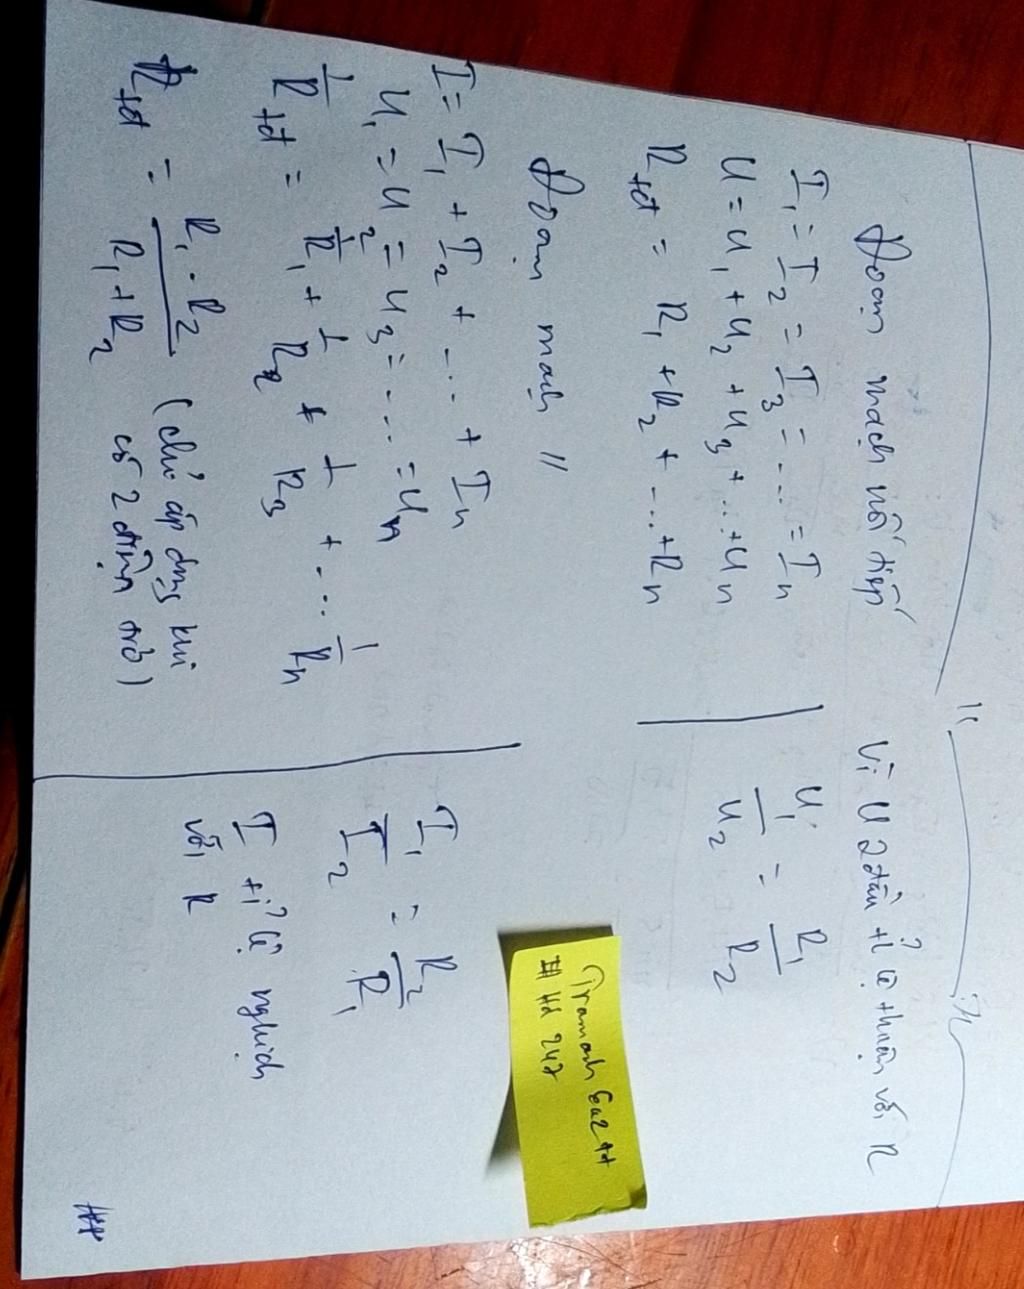 Đoạn mạch nối tiếp
I₁ = I₂ = I₃ = ... = Iₙ
U = U₁ + U₂ + U₃ + ... + Uₙ
Rtđ = R₁ + R₂ + ... + Rₙ
Vì U 2 đầu tỉ lệ thuận với R
U₁/U₂ = R₁/R₂
Đoạn mạch //
I = I₁ + I₂ + ... + Iₙ
U₁ = U₂ = U₃ = ... = Uₙ
1/Rtđ = 1/R₁ + 1/R₂ + 1/R₃ + ... 1/Rₙ
Rtđ = R₁.R₂/R₁+R₂ (chỉ áp dụng khi
có 2 điện trở)
I₁/I₂ = R₂/R₁
I tỉ lệ nghịch
với R
# Hd 247